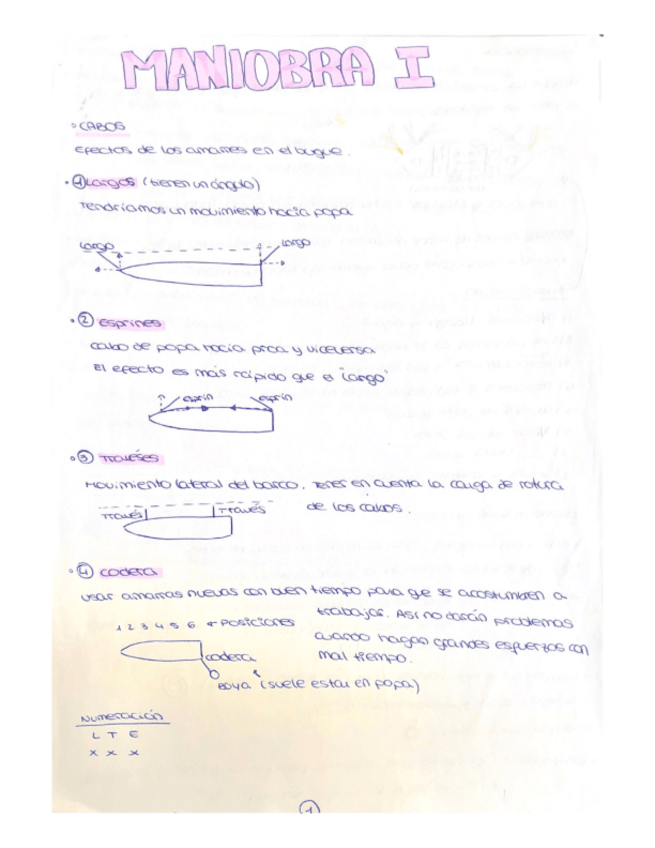 MANIOBRA I
◦ CABOS
Efectos de los amarres en el buque.
• ① Largos (tienen un ángulo)
Tendríamos un movimiento hacia popa
Largo
Largo
• ② Esprines
Cabo de popa hacia proa y viceversa
El efecto es más rápido que el "largo"
esprin
esprin
• ③ Traveses
Movimiento lateral del barco. Tener en cuenta la carga de rotura
de los cabos.
Través
Través
• ④ Codera
Usar amarras nuevas con buen tiempo para que se acostumbren a
trabajar. Así no darán problemas
cuando hagan grandes esfuerzos con
mal tiempo.
1 2 3 4 5 6 ← Posiciones
codera
Boya (suele estar en popa)
Numeración
L T E
x x x
1